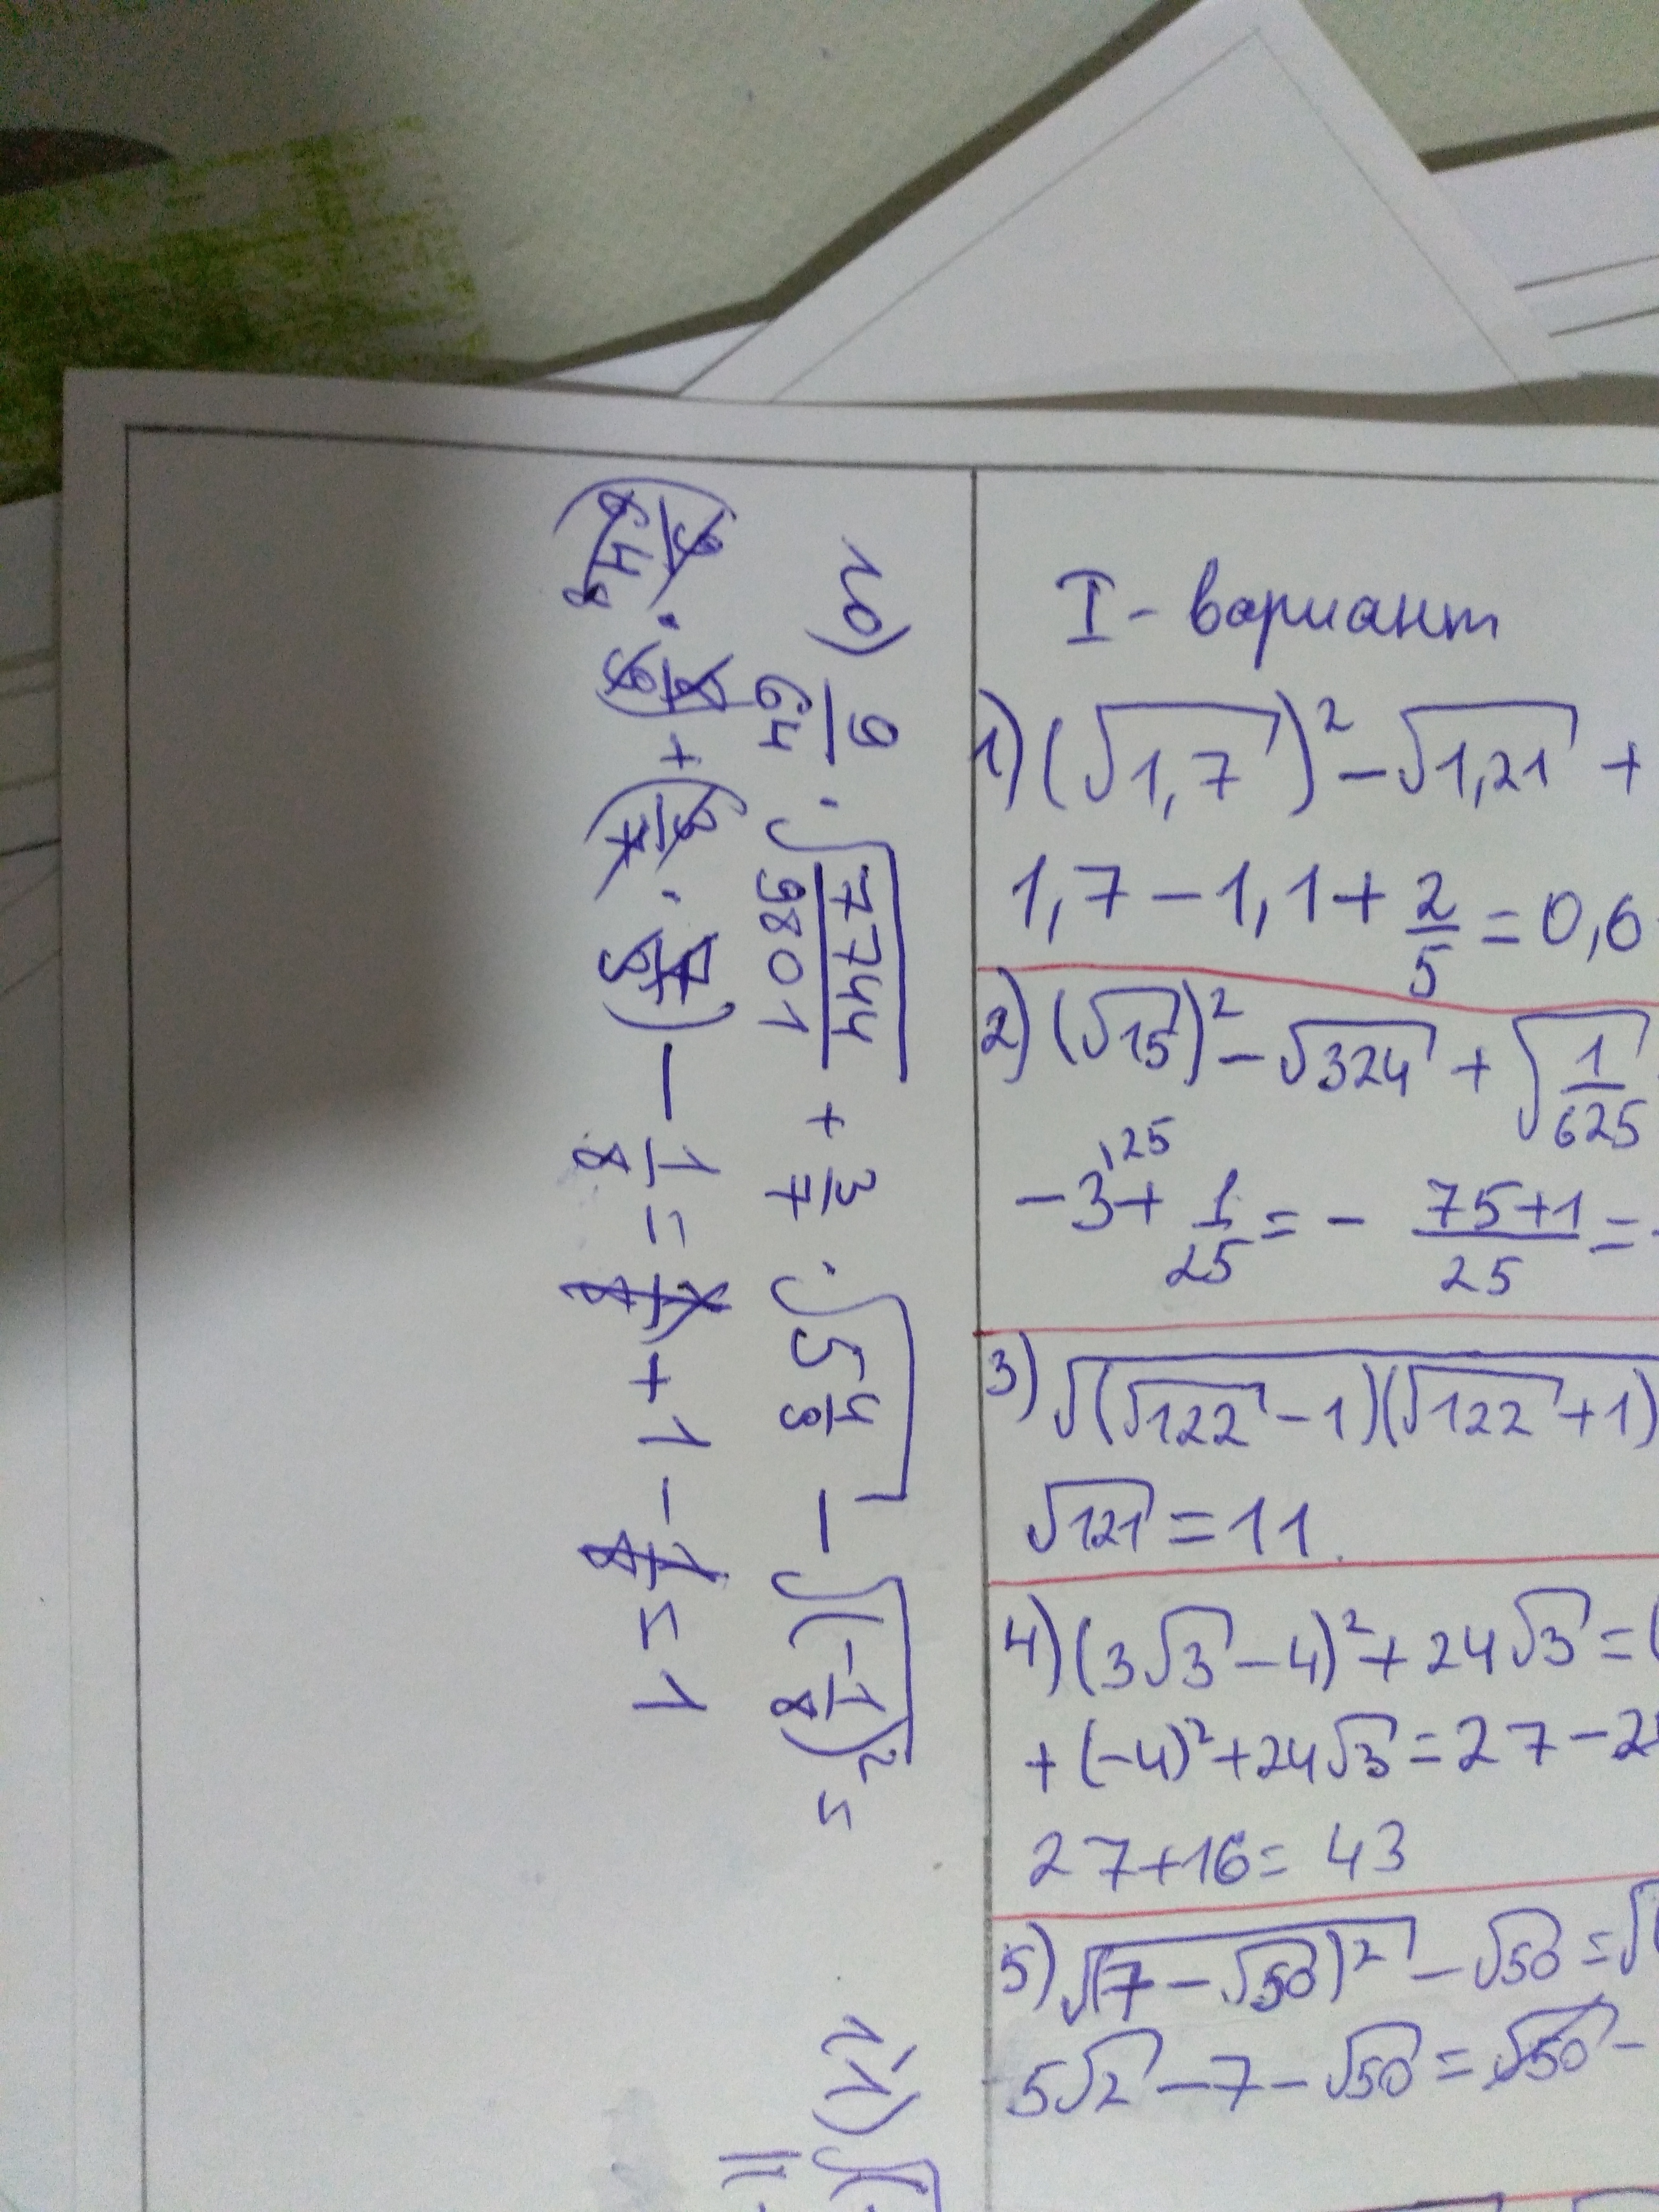 I - вариант
1) (√1,7)² - √1,21 +
1,7 - 1,1 + 2/5 = 0,6
2) (√15)² - √324 + √(1/625)
-3 + 1/25 = - (75+1)/25 =
,25
3) √((√122 - 1)(√122 + 1)
√121 = 11.
4) (3√3 - 4)² + 24√3 = (
+ (-4)² + 24√3 = 27 - 2
27 + 16 = 43
5) √(7 - √50)² - √50 = √(
5√2 - 7 - √50 = √50 -
10) 9/64 · √(7744/9801) + 3/7 · √(5 4/9) - √((-1/8)²) =
(9/64 · 8/9) + (3/7 · 7/3) - 1/8 = 1/8 + 1 - 1/8 = 1
11) √(
=